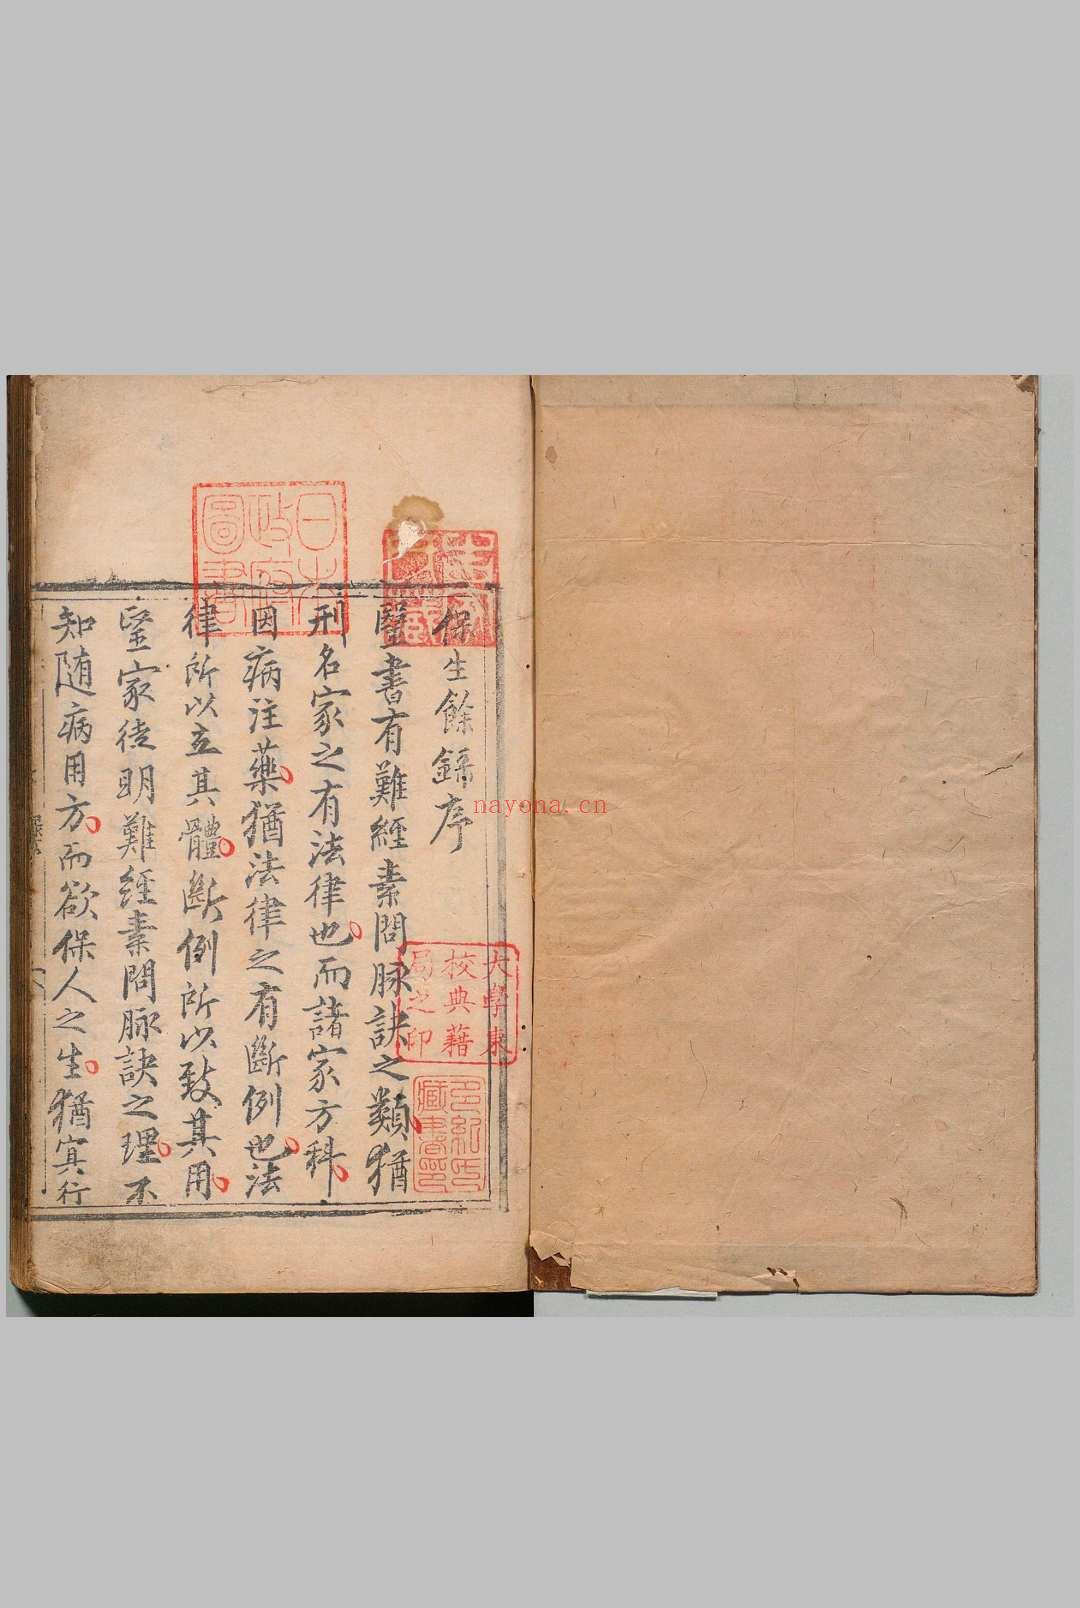 保生餘錄序
醫書有難經素問脉訣之類猶
刑名家之有法律也而諸家方科
因病注藥猶法律之有斷例也法
律所以立其體斷例所以致其用
毉家徒明難經素問脉訣之理不
知随病用方而欲保人之生猶寘行
日本
政府
圖書
大學東
校典藉
局之印
藏書印
nayona.cn